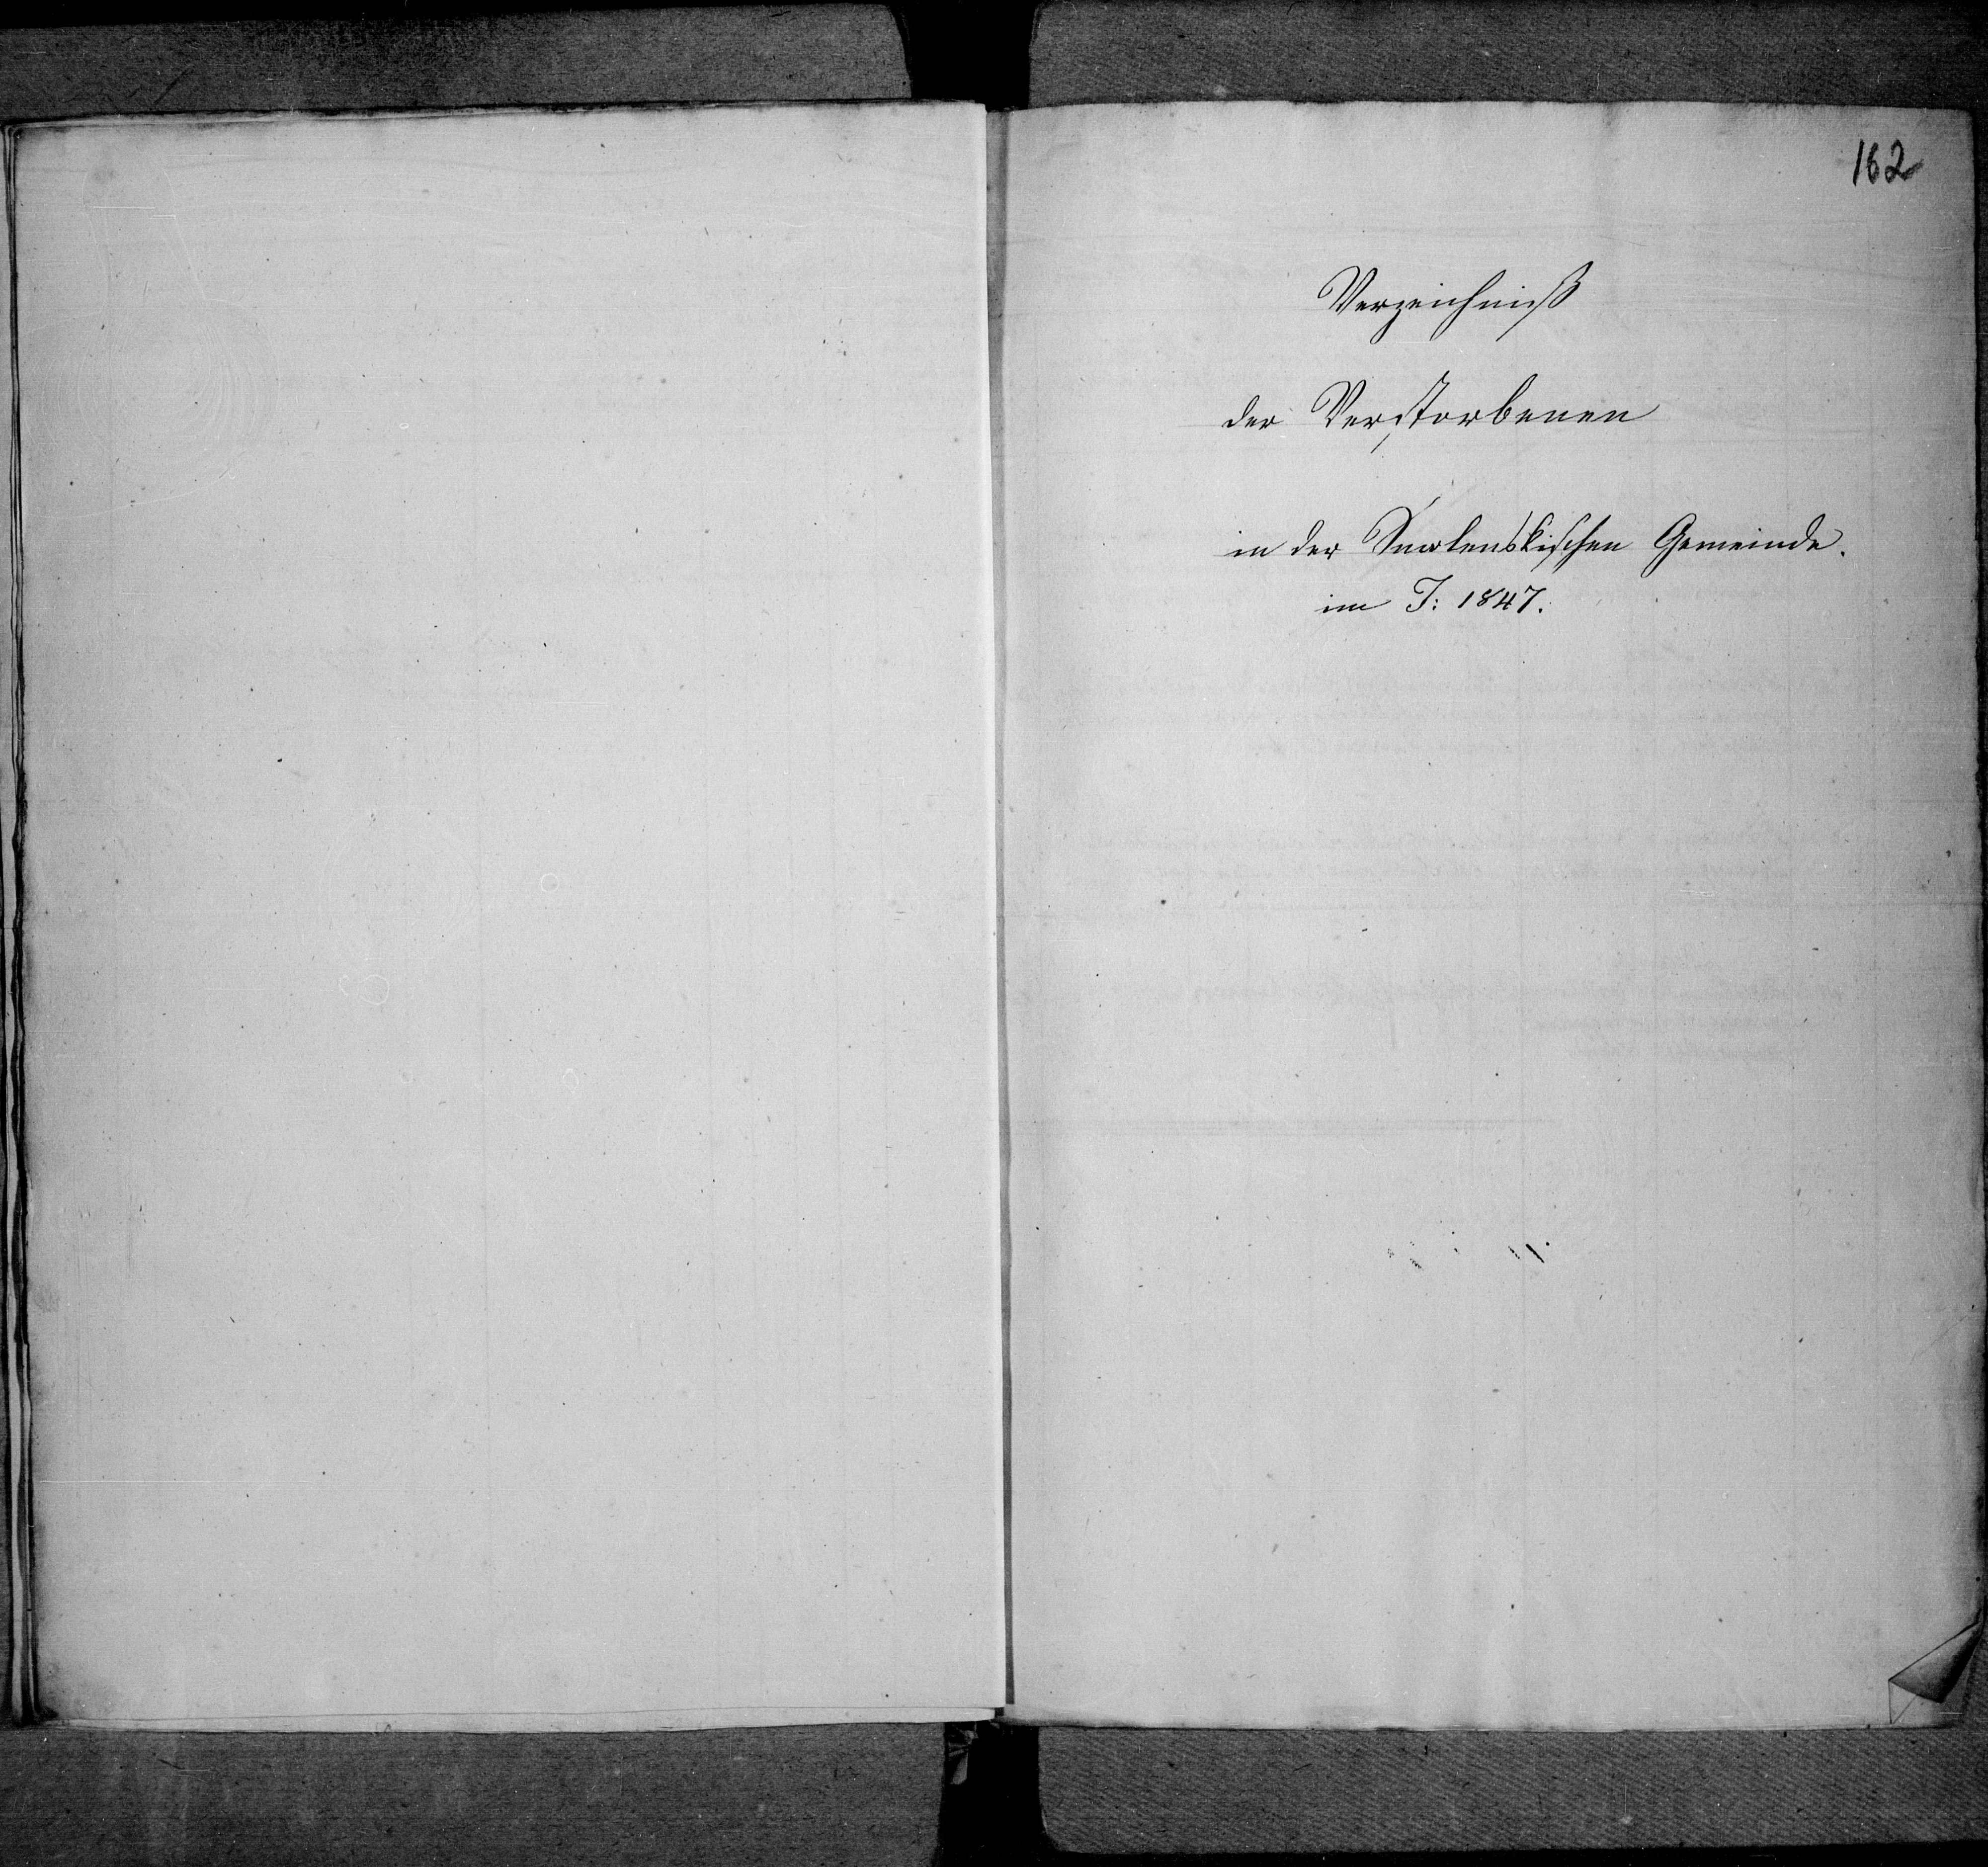 162
Verzeichniß
der Verstorbenen
in der Smolenskischen Gemeinde.
im J: 1847.